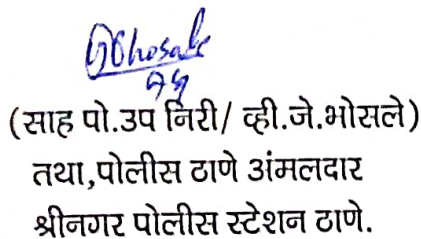 Bhosale
(साह पो.उप निरी/ व्ही.जे.भोसले)
तथा,पोलीस ठाणे अंमलदार
श्रीनगर पोलीस स्टेशन ठाणे.